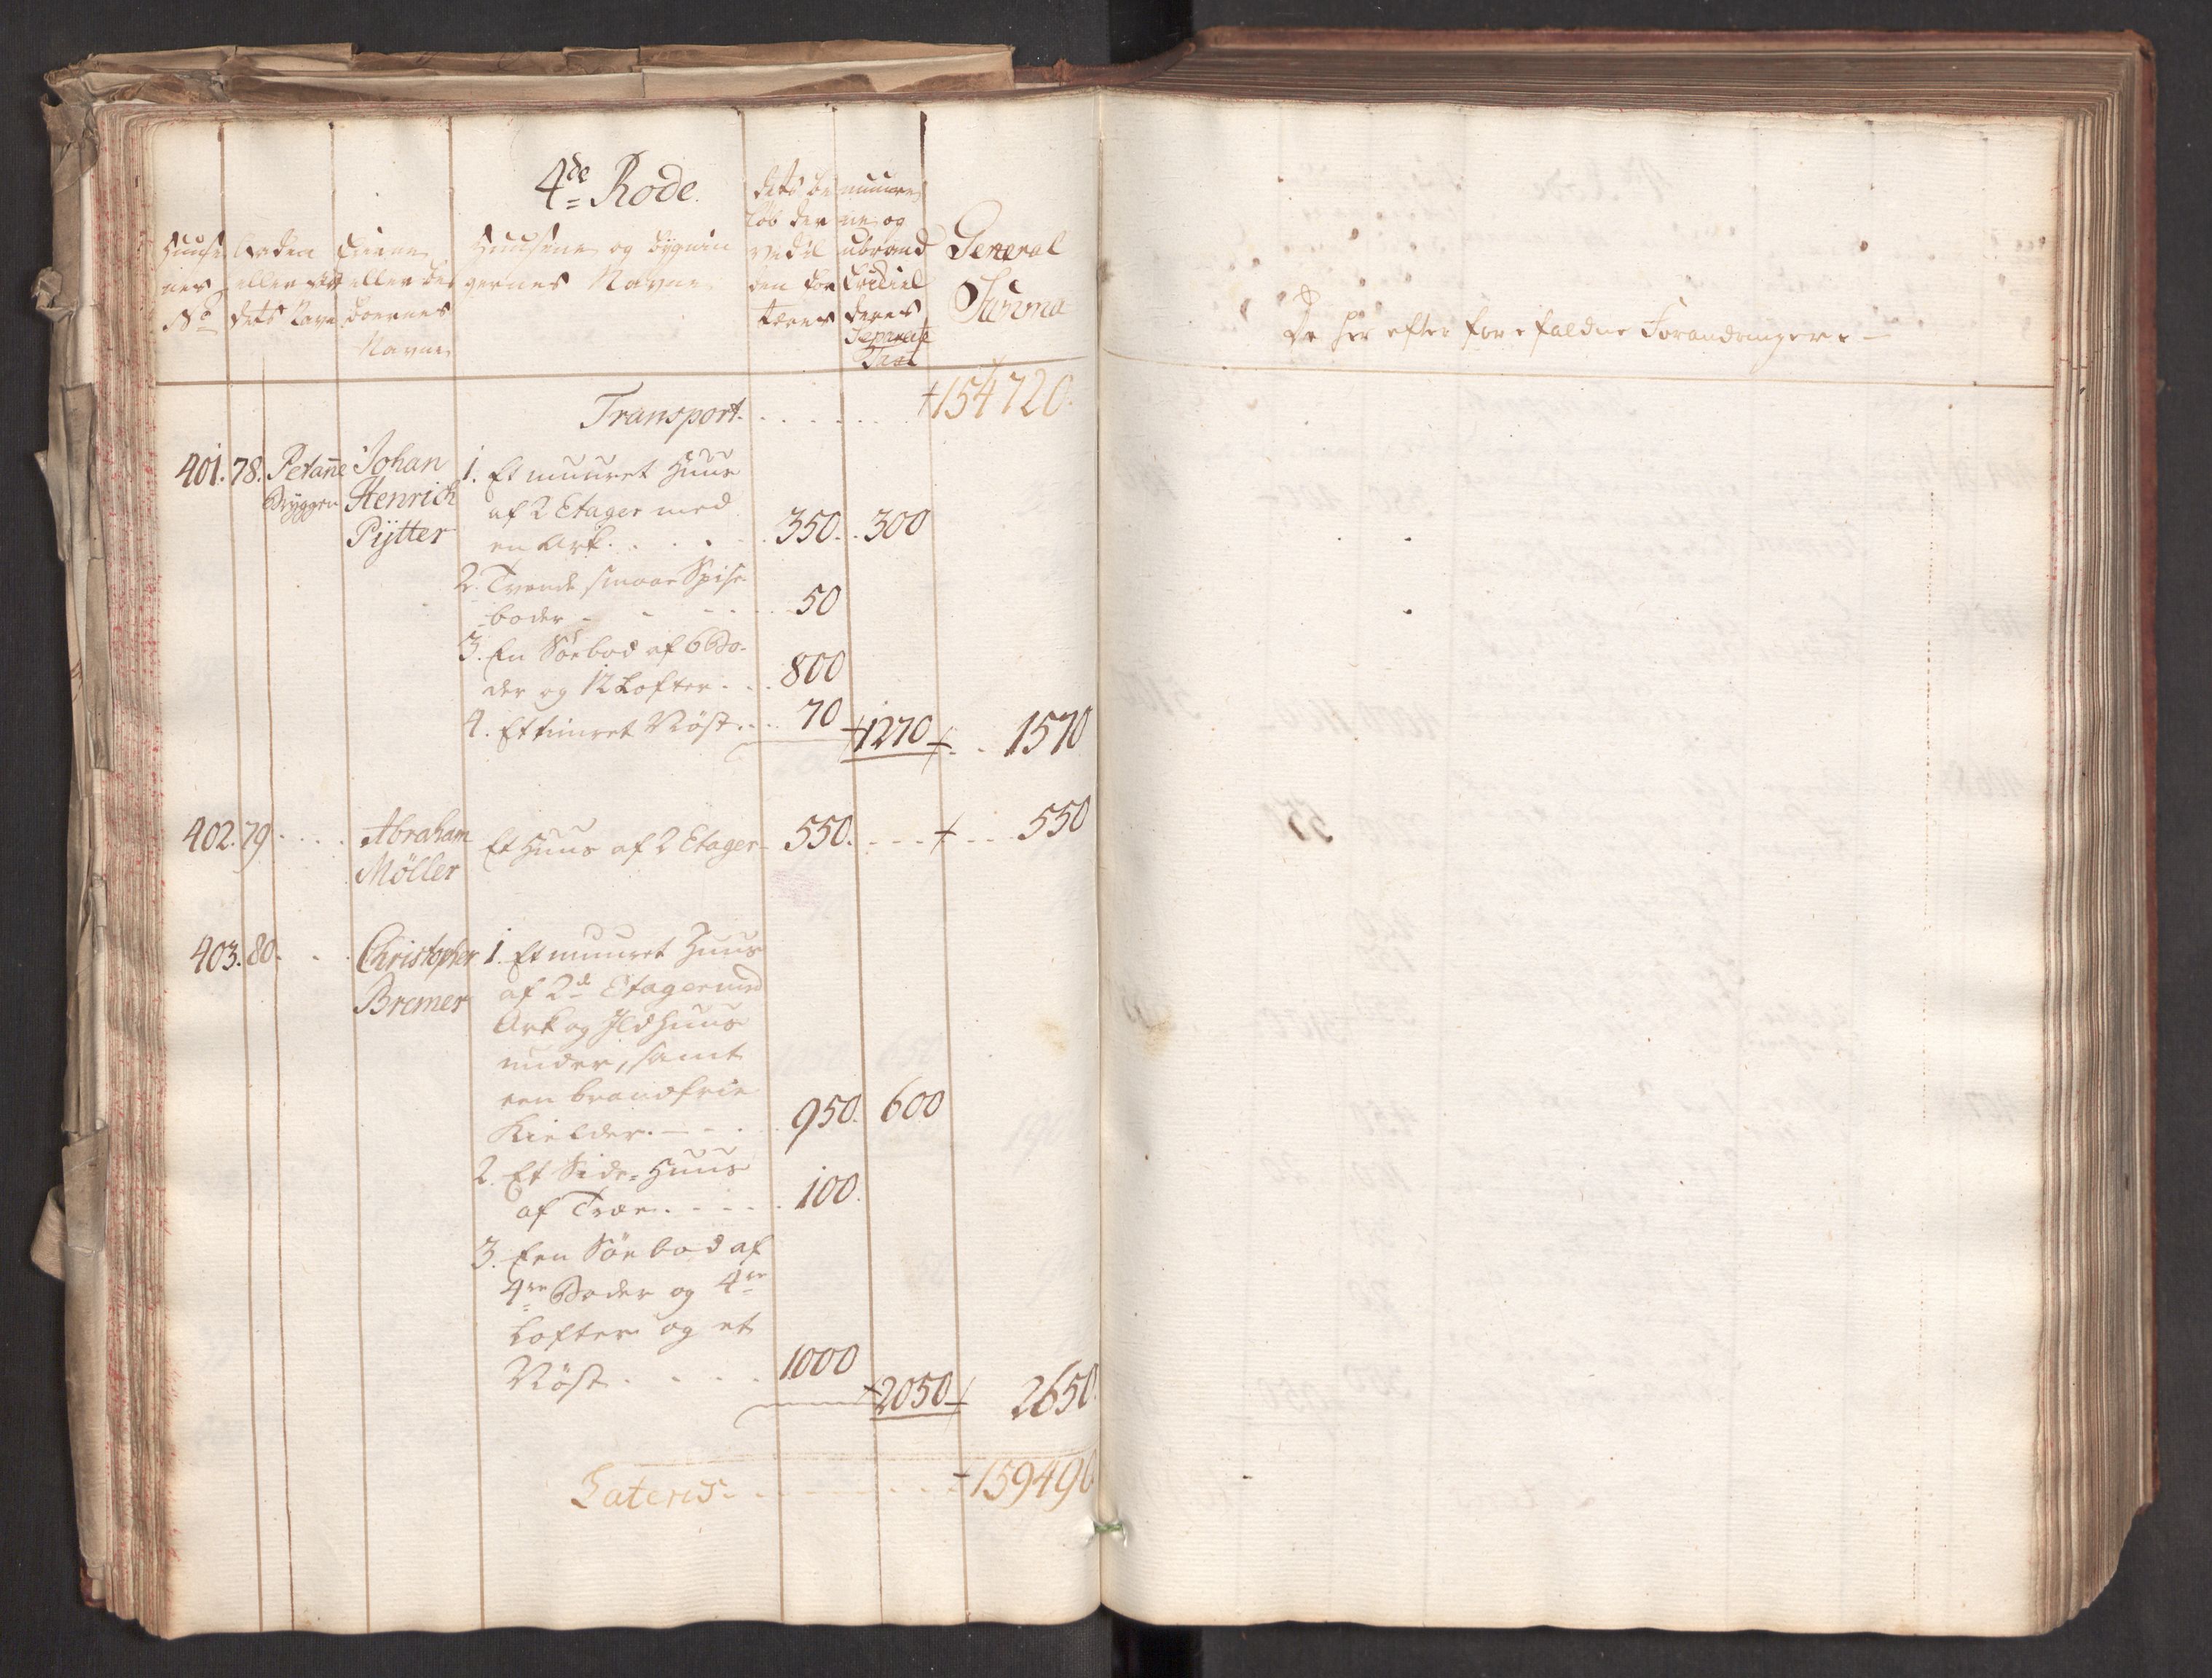 4de Rode.
Huuse
nes
No
Gaden
eller Stæ
dets Navn
Eiernes
eller Be
boernes
Navne
Huusene og Bygnin
gernes Navne
dets be
løb der
ved il
den for
tæres
muure
ne og
ubrænd
deres
Separate
Taxt
General
Summa
Transport. 154720.
401. 78. Petanne Bryggen
Johan
Henrich
Pÿtter
1. Et muuret Huus
af 2 Etager med
en Ark. 350. 300
2. Tvende smaae Spise
boder 50
3. En Søebod af 6 Bo-
der og 12 Lofter. 800
4. Et timret Nøst. 70 1270 1570
402. 79
Abraham
Möller
Et Huus af 2 Etager 550. 550
403. 80.
Christopher
Bremer
1. Et muuret Huus
af 2de Etager med
Ark og Ildhuus
under, samt
een brandfrie
Kielder. 950. 600
2. Et Side-Huus
af Træe. 100.
3. Een Søebod af
4re Boder og 4re
Lofter og et
Nøst. 1000 2050 2650.
Lateris. 159490
De her efter forefaldne Forandringer